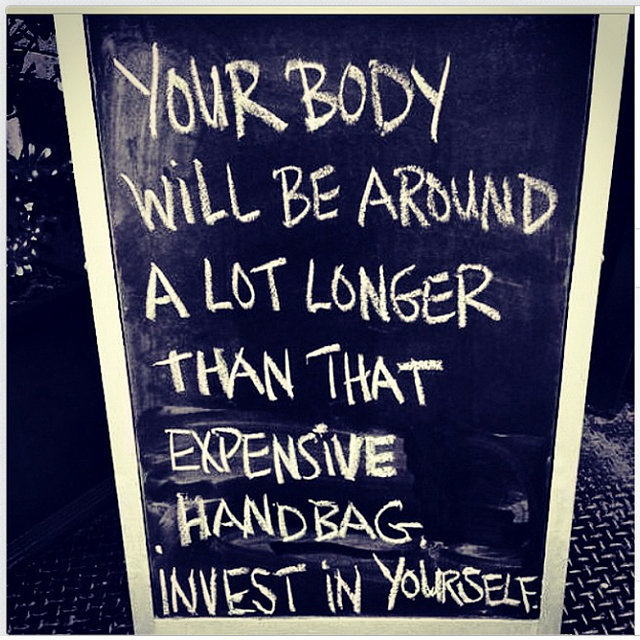 YOUR BODY
WiLL BE AROUND
A LOT LONGER
THAN THAT
EXPENSiVE
. HANDBAG.
INVEST iN YOURSELF.